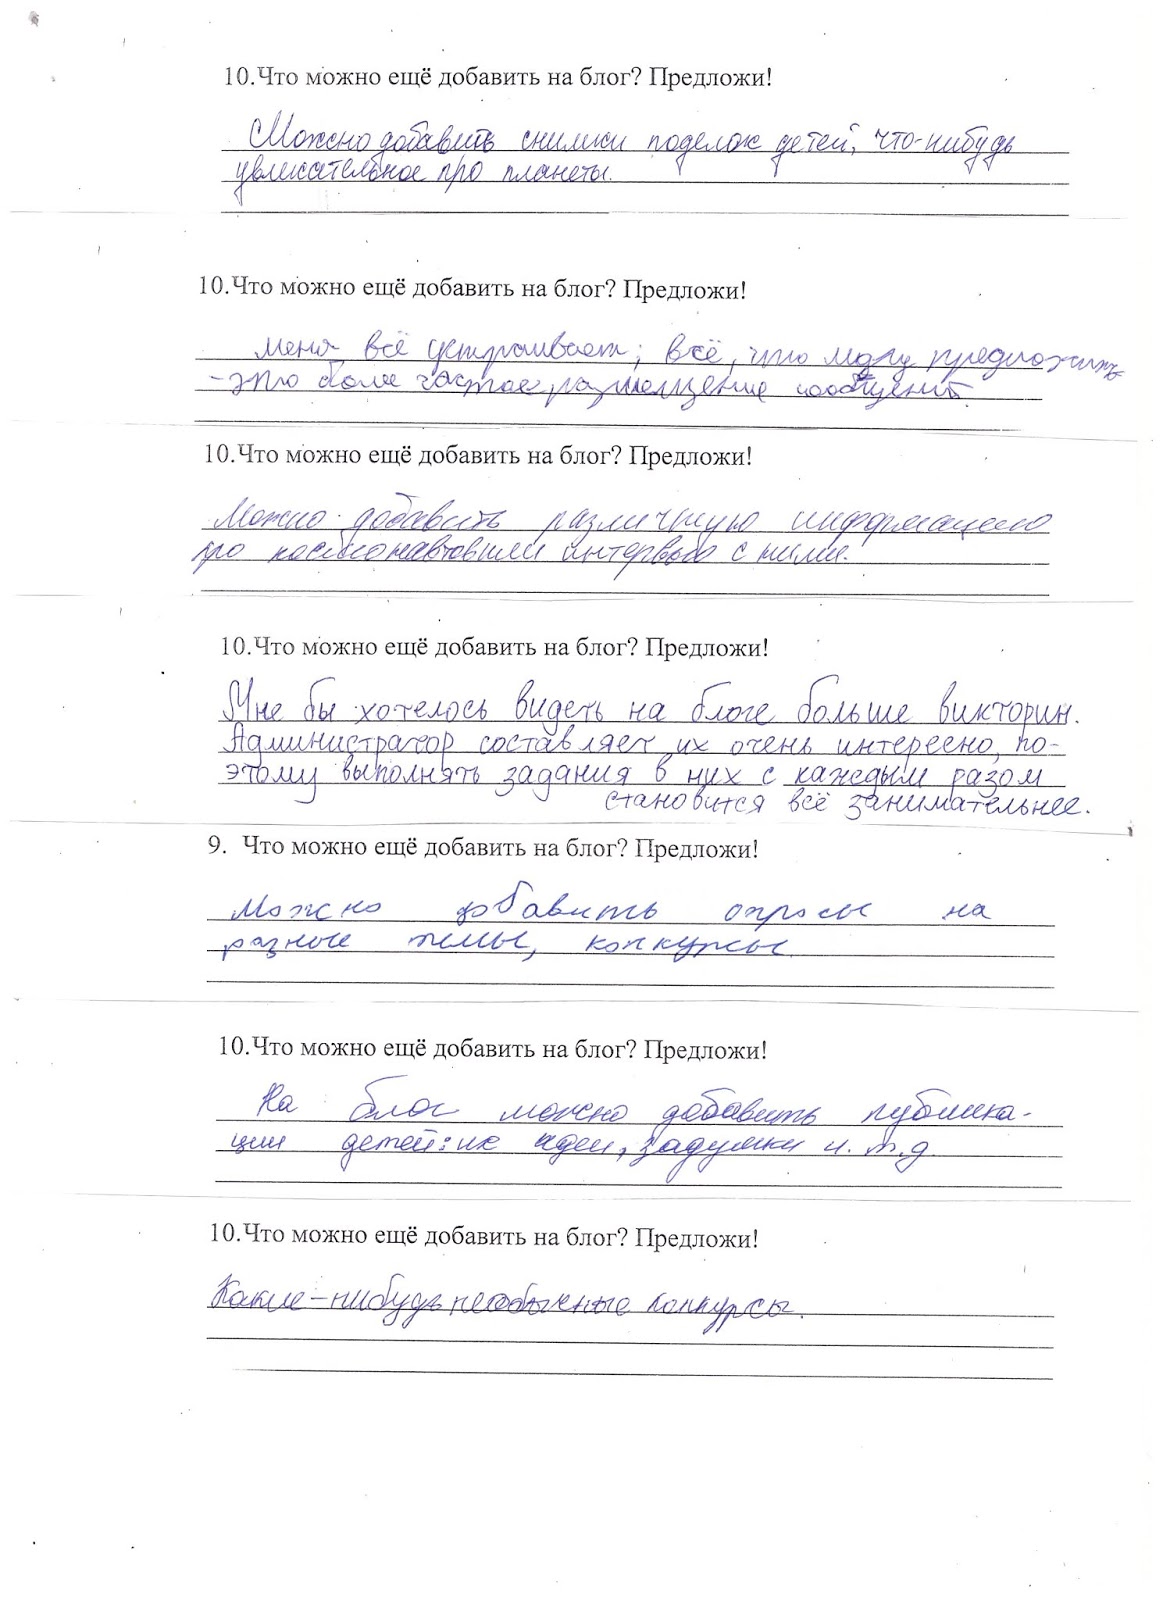 10.Что можно ещё добавить на блог? Предложи!
Можно добавить снимки поделок детей, что-нибудь
увлекательное про планеты.
10.Что можно ещё добавить на блог? Предложи!
меня всё устраивает; всё, что могу предложить
-это более частое размещение сообщений
10.Что можно ещё добавить на блог? Предложи!
Можно добавить различную информацию
про космонавтов или интервью с ними.
10.Что можно ещё добавить на блог? Предложи!
Мне бы хотелось видеть на блоге больше викторин.
Администратор составляет их очень интересно, по-
этому выполнять задания в них с каждым разом
становится всё занимательнее.
9. Что можно ещё добавить на блог? Предложи!
Можно добавить опросы на
разные темы, конкурсы.
10.Что можно ещё добавить на блог? Предложи!
На блог можно добавить публика-
ции детей: их идеи, задумки и.т.д.
10.Что можно ещё добавить на блог? Предложи!
Какие-нибудь необычные конкурсы.